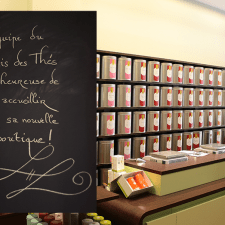 équipe du
is des Thés
heureuse de
accueillir
sa nouvelle
boutique !